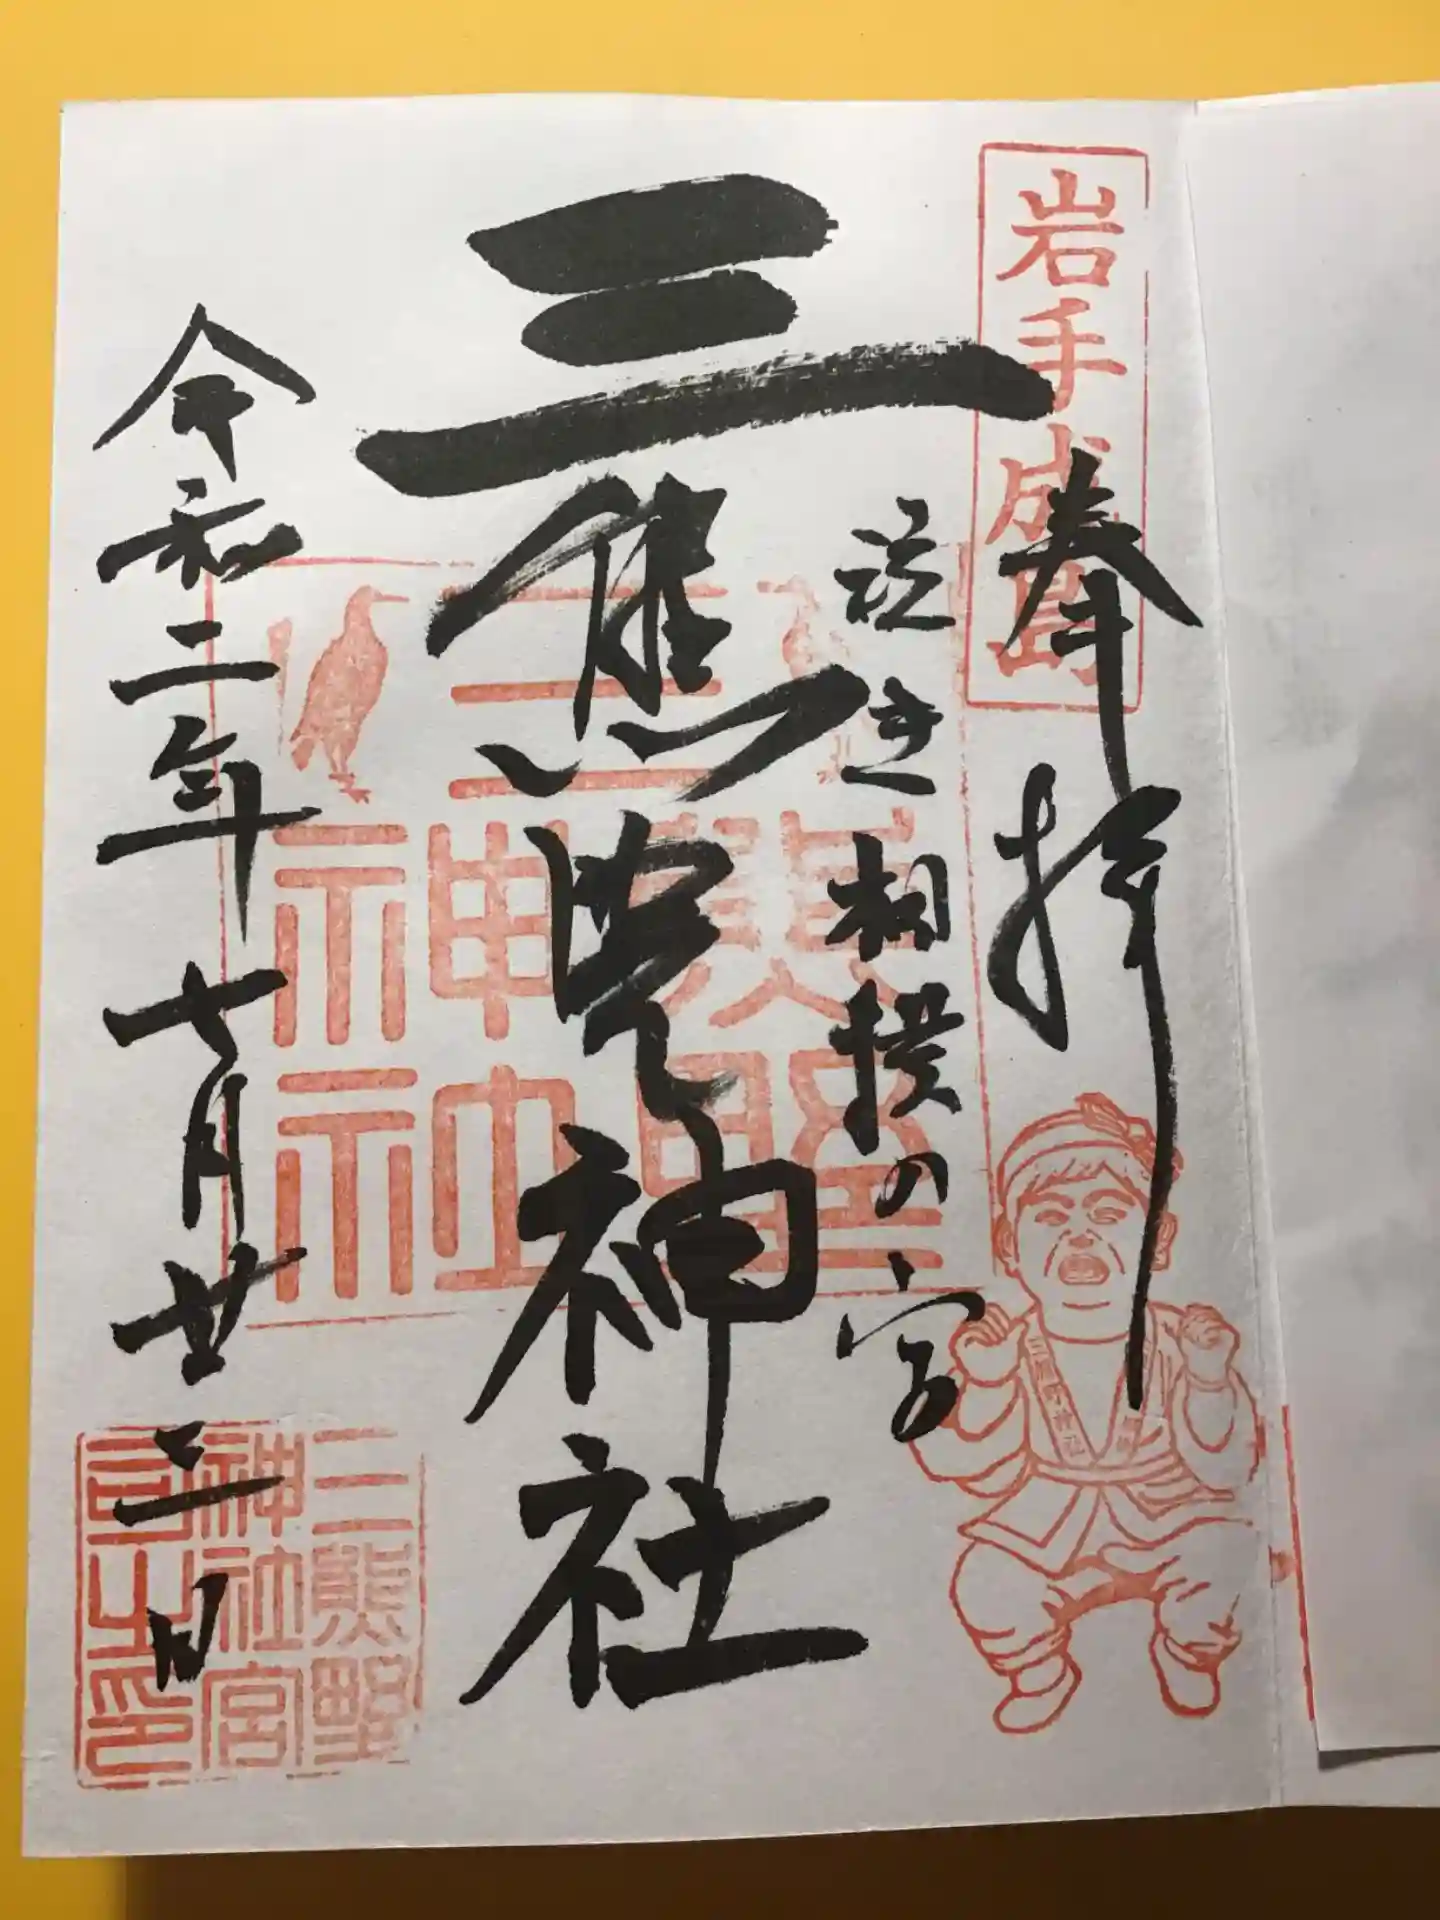 岩手成島
奉拝
泣き相撲の宮
三熊野神社
三熊野神社
令和二年七月廿三日
三熊野
神社宮
司之印